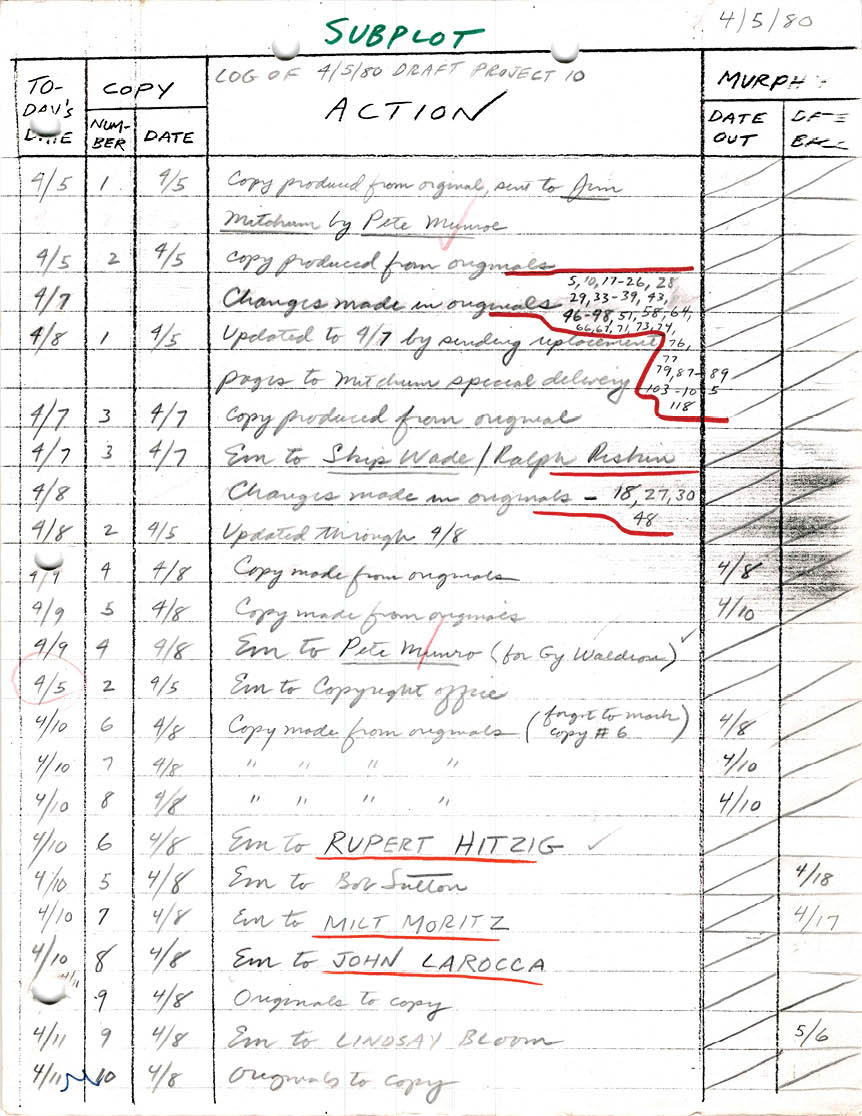 SUBPLOT
4/5/80
LOG OF 4/5/80 DRAFT PROJECT 10
TO-DAY'S DATE COPY ACTION MURPH
NUM-BER DATE DATE OUT
4/5 1 4/5 Copy produced from orginal, sent to Jim
Mitchum by Pete Munroe
4/5 2 4/5 Copy produced from originals
4/7 Changes made in originals 5, 10, 17-26, 28
29, 33-39, 43,
46-48, 51, 58, 64,
66, 67, 71, 73, 74,
4/8 1 4/5 Updated to 4/7 by sending replacement 76,
77
pages to Mitchum special delivery 79, 87-89
103-105
118
4/7 3 4/7 Copy produced from original
4/7 3 4/7 Em to Skip Wade / Ralph Riskin
4/8 Changes made in originals - 18, 27, 30
48
4/8 2 4/5 Updated through 4/8
4/9 4 4/8 Copy made from originals 4/8
4/9 5 4/8 Copy made from originals 4/10
4/9 4 4/8 Em to Pete Munro (for Gy Waldron) ✓
4/5 2 4/5 Em to Copyright office
4/10 6 4/8 Copy made from originals (forgot to mark copy # 6) 4/8
4/10 7 4/8 " " " " 4/10
4/10 8 4/8 " " " " 4/10
4/10 6 4/8 Em to RUPERT HITZIG ✓
4/10 5 4/8 Em to Bob Sutton 4/18
4/10 7 4/8 Em to MILT MORITZ 4/17
4/10 8 4/8 Em to JOHN LAROCCA
4/11 9 4/8 Originals to copy
4/11 9 4/8 Em to LINDSAY BLOOM 5/6
4/11 10 4/8 Originals to copy